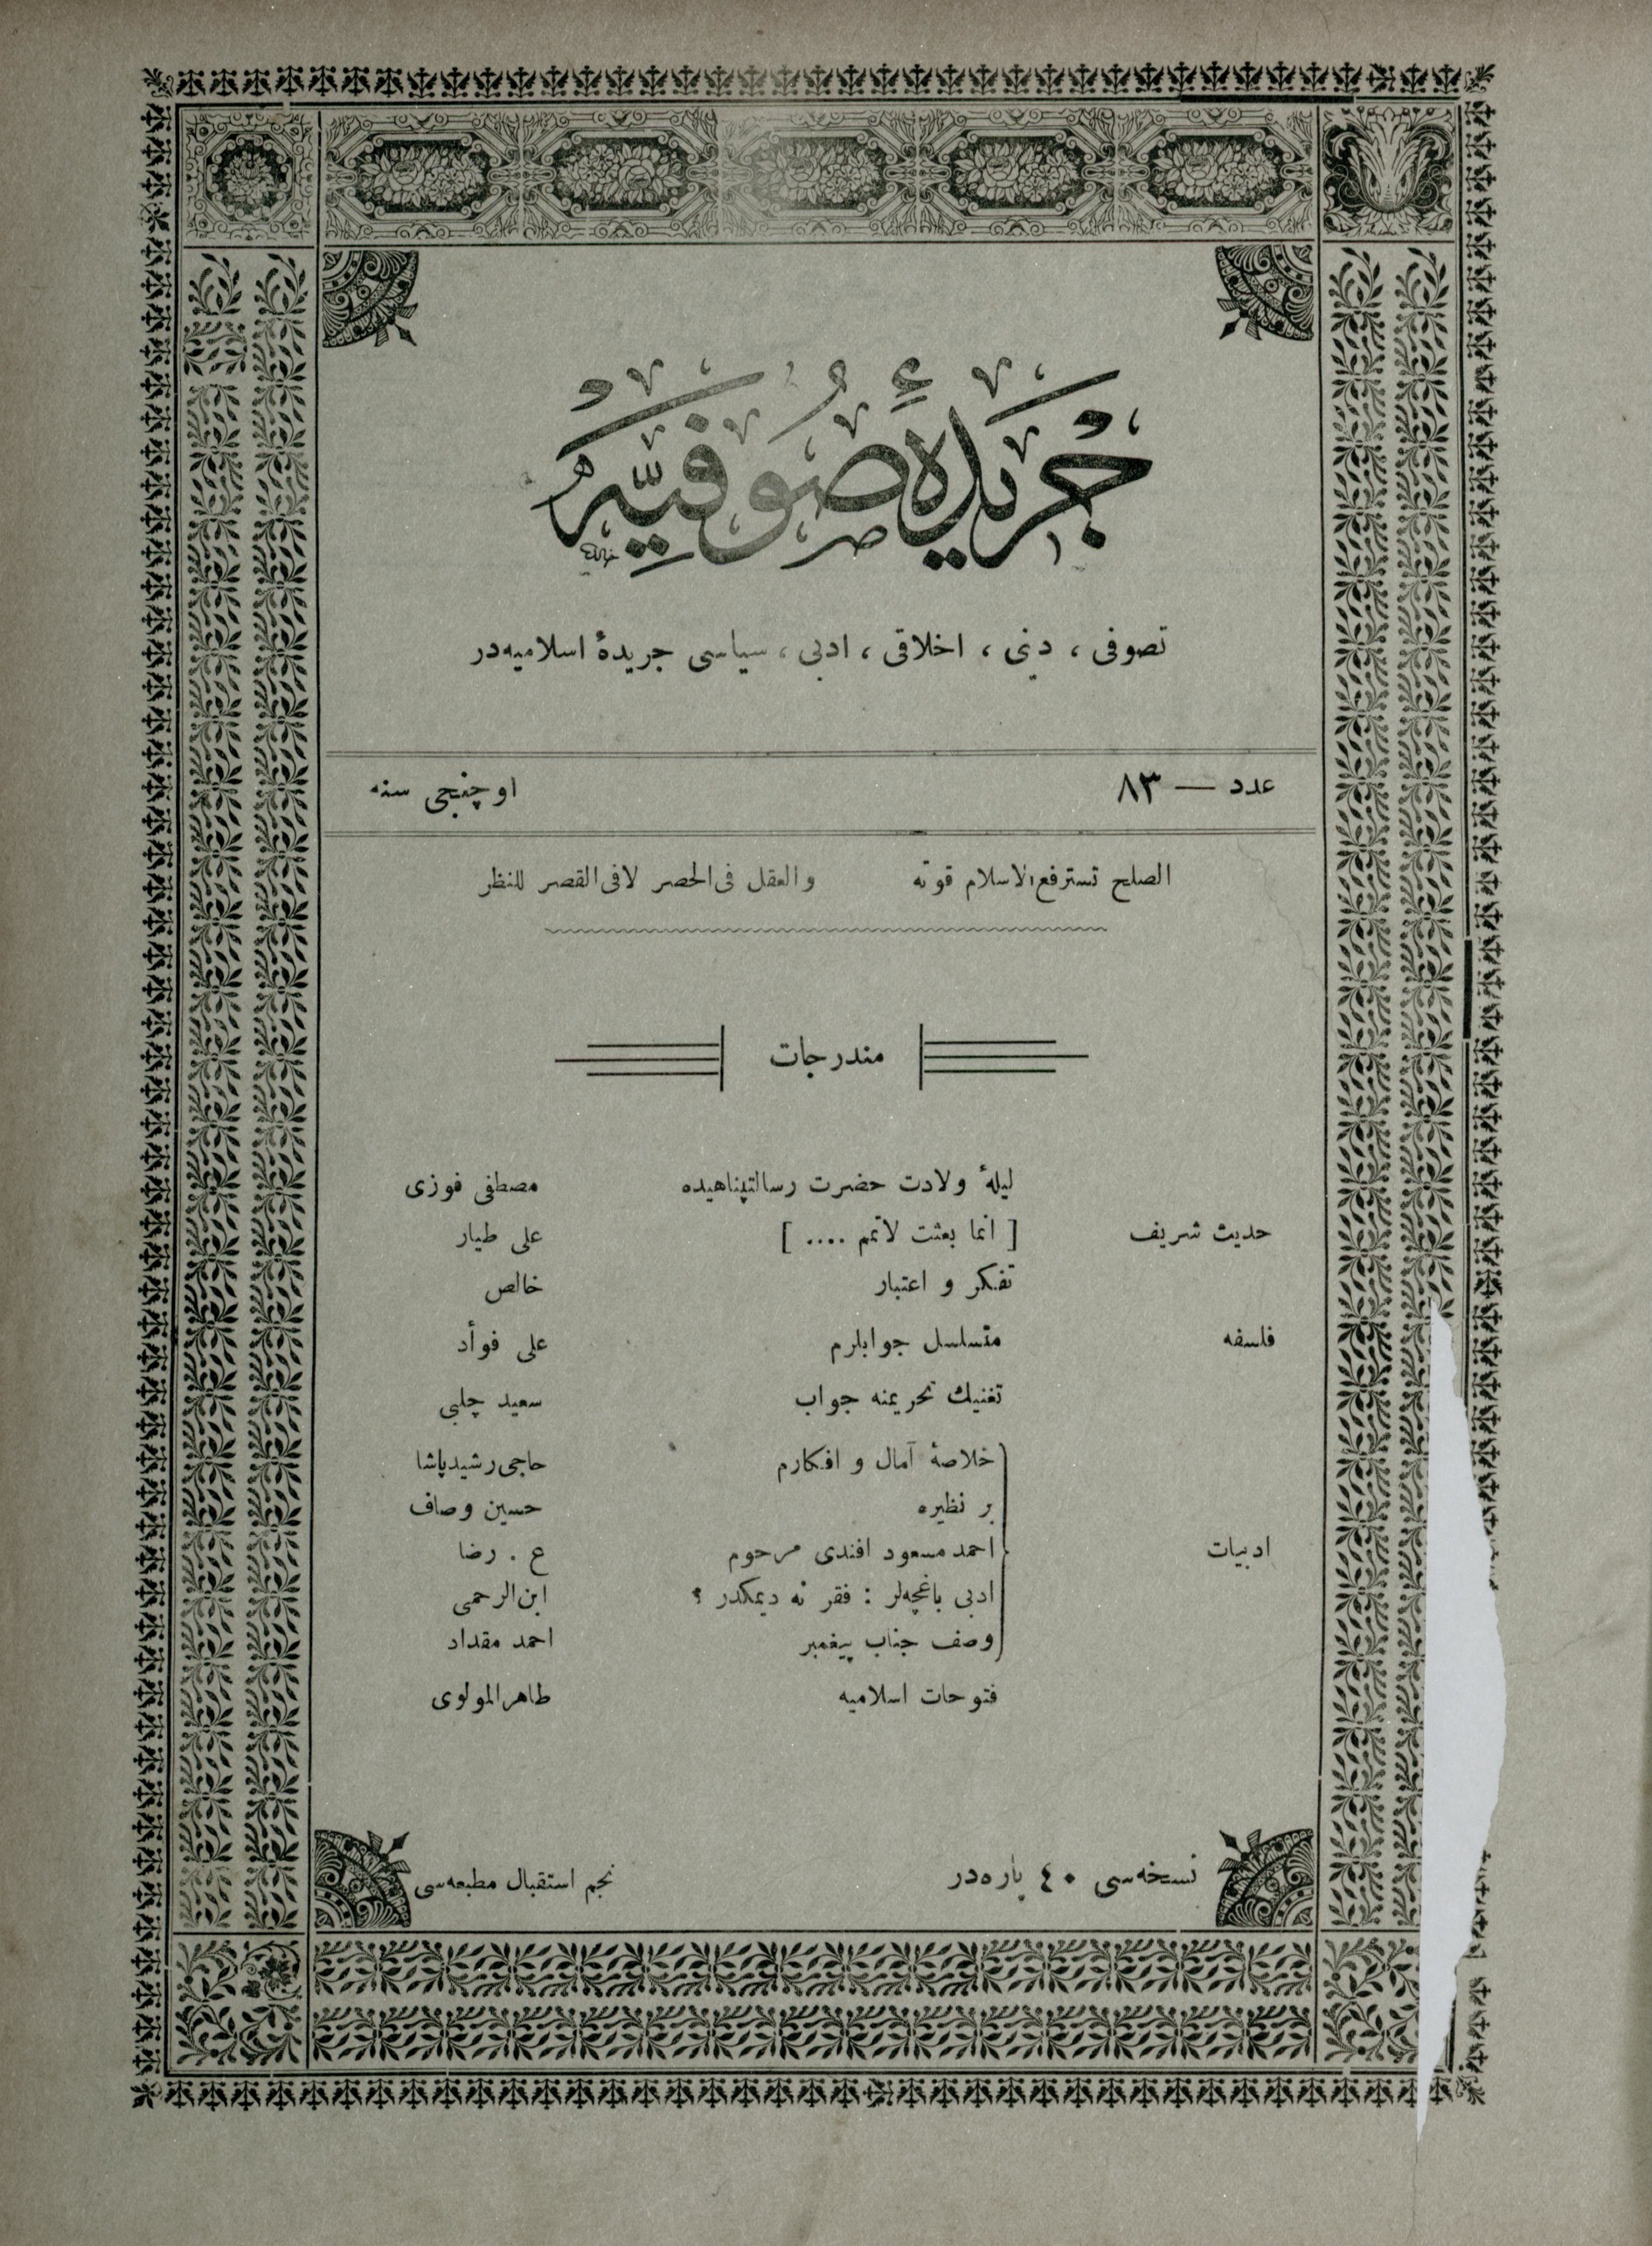 جريدۀ صُوفيّه
تصوفى ، دينى ، اخلاقى ، ادبى ، سياسى جريدۀ اسلاميه‌در
عدد — ٨٣ اوچنجى سنه
الصلح تسترفع الاسلام قوته والعقل فى الحصر لا فى القصر للنظر
مندرجات
ليلۀ ولادت حضرت رسالتپناهيده مصطفى فوزى
حديث شريف [ انما بعثت لاتمم .... ] على طيار
تفكر و اعتبار خالص
فلسفه متسلسل جوابلرم على فوأد
تغنينك تحريمنه جواب سعيد چلبى
خلاصۀ آمال و افكارم حاجى رشيد پاشا
بر نظيره حسين وصاف
ادبيات احمد مسعود افندى مرحوم ع . رضا
ادبى باغچه‌لر : فقر نه ديمكدر ؟ ابن الرحمى
وصف جناب پيغمبر احمد مقداد
فتوحات اسلاميه طاهر المولوى
نسخه‌سى ٤٠ پاره‌در نجم استقبال مطبعه‌سى